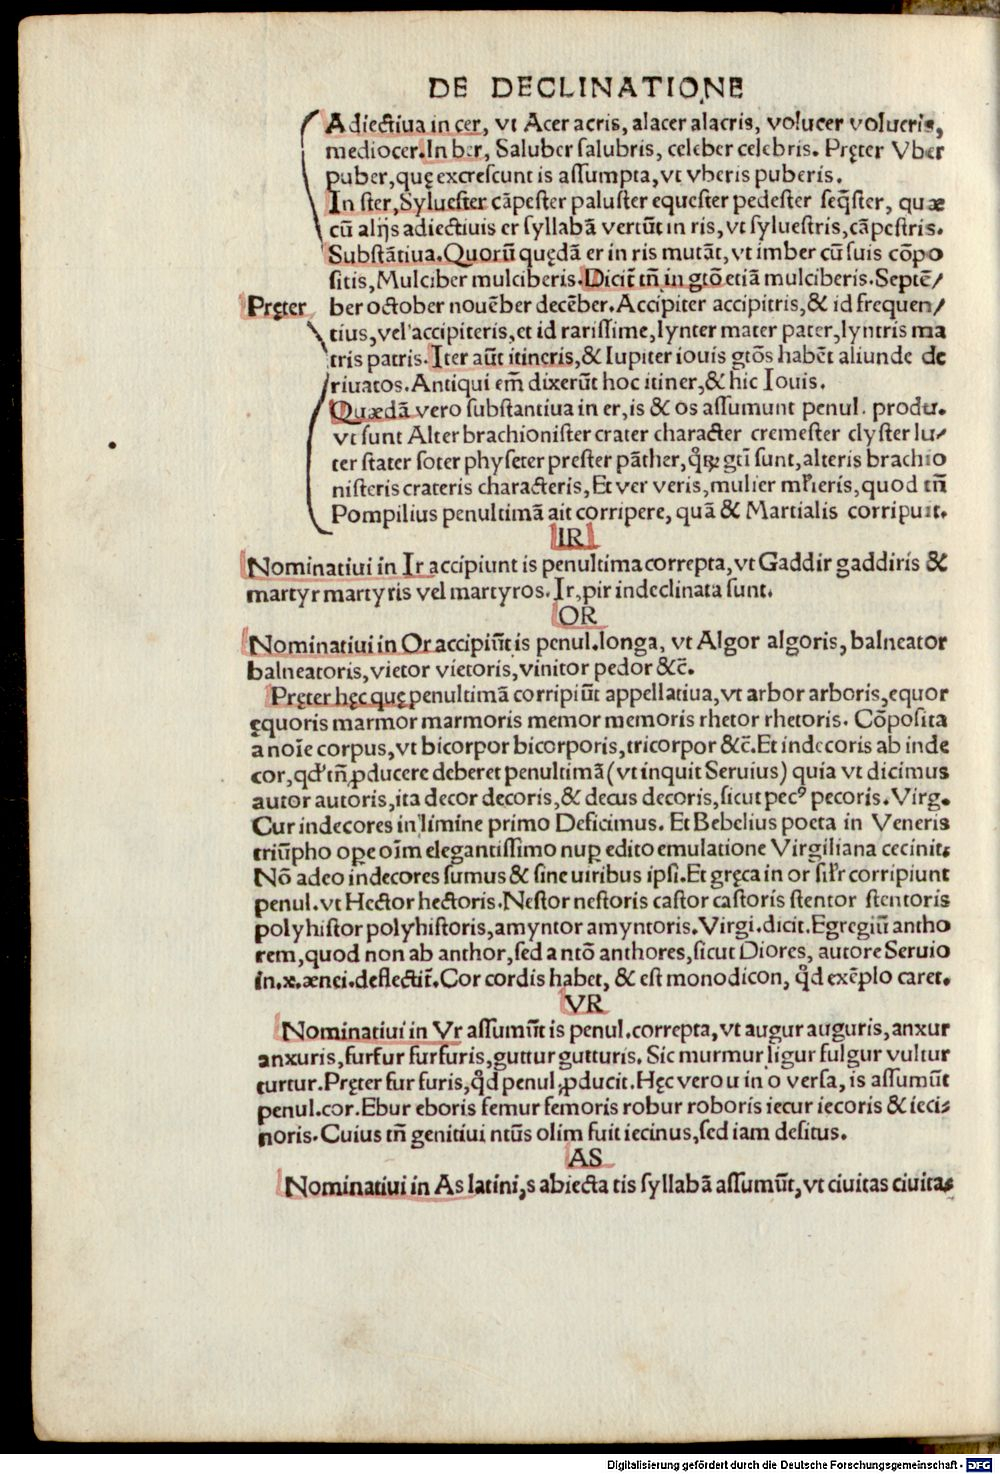 DE DECLINATIONE
Adiectiua in cer, vt Acer acris, alacer alacris, volucer volucris,
mediocer. In ber, Saluber salubris, celeber celebris. Pręter Vber
puber, quę excrescunt is assumpta, vt vberis puberis.
In ster, Syluester cāpester paluster equester pedester seq̃ster, quæ
cū alijs adiectiuis er syllabā vertūt in ris, vt syluestris, cāpestris.
Substātiua. Quorū quędā er in ris mutāt, vt imber cū suis cōpo
sitis, Mulciber mulciberis. Dicit̃ tñ in gtõ etiā mulciberis. Septē/
Pręter ber october nouēber decēber. Accipiter accipitris, & id frequen/
tius, vel accipiteris, et id rarissime, lynter mater pater, lyntris ma
tris patris. Iter aūt itineris, & Iupiter iouis gtõs habēt aliunde de
riuatos. Antiqui em̃ dixerūt hoc itiner, & hic Iouis.
Quædā vero substantiua in er, is & os assumunt penul. produ.
vt sunt Alter brachionister crater character cremester clyster lu/
ter stater soter physeter prester pāther, q̊ꝝ gtĩ sunt, alteris brachio
nisteris crateris characteris, Et ver veris, mulier mĺieris, quod tñ
Pompilius penultimā ait corripere, quā & Martialis corripuit.
IR
Nominatiui in Ir accipiunt is penultima correpta, vt Gaddir gaddiris &
martyr martyris vel martyros. Ir, pir indeclinata sunt.
OR
Nominatiui in Or accipiūt is penul. longa, vt Algor algoris, balneator
balneatoris, vietor vietoris, vinitor pedor &c̃.
Pręter hęc quę penultimā corripiūt appellatiua, vt arbor arboris, equor
ęquoris marmor marmoris memor memoris rhetor rhetoris. Cōposita
a noĩe corpus, vt bicorpor bicorporis, tricorpor &c̃. Et indecoris ab inde
cor, qd' tñ ꝓducere deberet penultimā (vt inquit Seruius) quia vt dicimus
autor autoris, ita decor decoris, & decus decoris, sicut pecꝰ pecoris. Virg.
Cur indecores in limine primo Deficimus. Et Bebelius poeta in Veneris
triūpho oꝑe oĩm elegantissimo nuꝑ edito emulatione Virgiliana cecinit:
Nō adeo indecores sumus & sine uiribus ipsi. Et gręca in or siĺr corripiunt
penul. vt Hector hectoris. Nestor nestoris castor castoris stentor stentoris
polyhistor polyhistoris, amyntor amyntoris. Virgi. dicit. Egregiū antho
rem, quod non ab anthor, sed a ntō anthores, sicut Diores, autore Seruio
in. x. ænei. deflectit̃. Cor cordis habet, & est monodicon, q̊d exēplo caret.
VR
Nominatiui in Vr assumūt is penul. correpta, vt augur auguris, anxur
anxuris, furfur furfuris, guttur gutturis. Sic murmur ligur fulgur vultur
turtur. Pręter fur furis, q̊d penul. ꝓducit. Hęc vero u in o versa, is assumūt
penul. cor. Ebur eboris femur femoris robur roboris iecur iecoris & ieci=
noris. Cuius tñ genitiui ntũs olim fuit iecinus, sed iam desitus.
AS
Nominatiui in As latini, s abiecta tis syllabā assumūt, vt ciuitas ciuitas
Digitalisierung gefördert durch die Deutsche Forschungsgemeinschaft - DFG